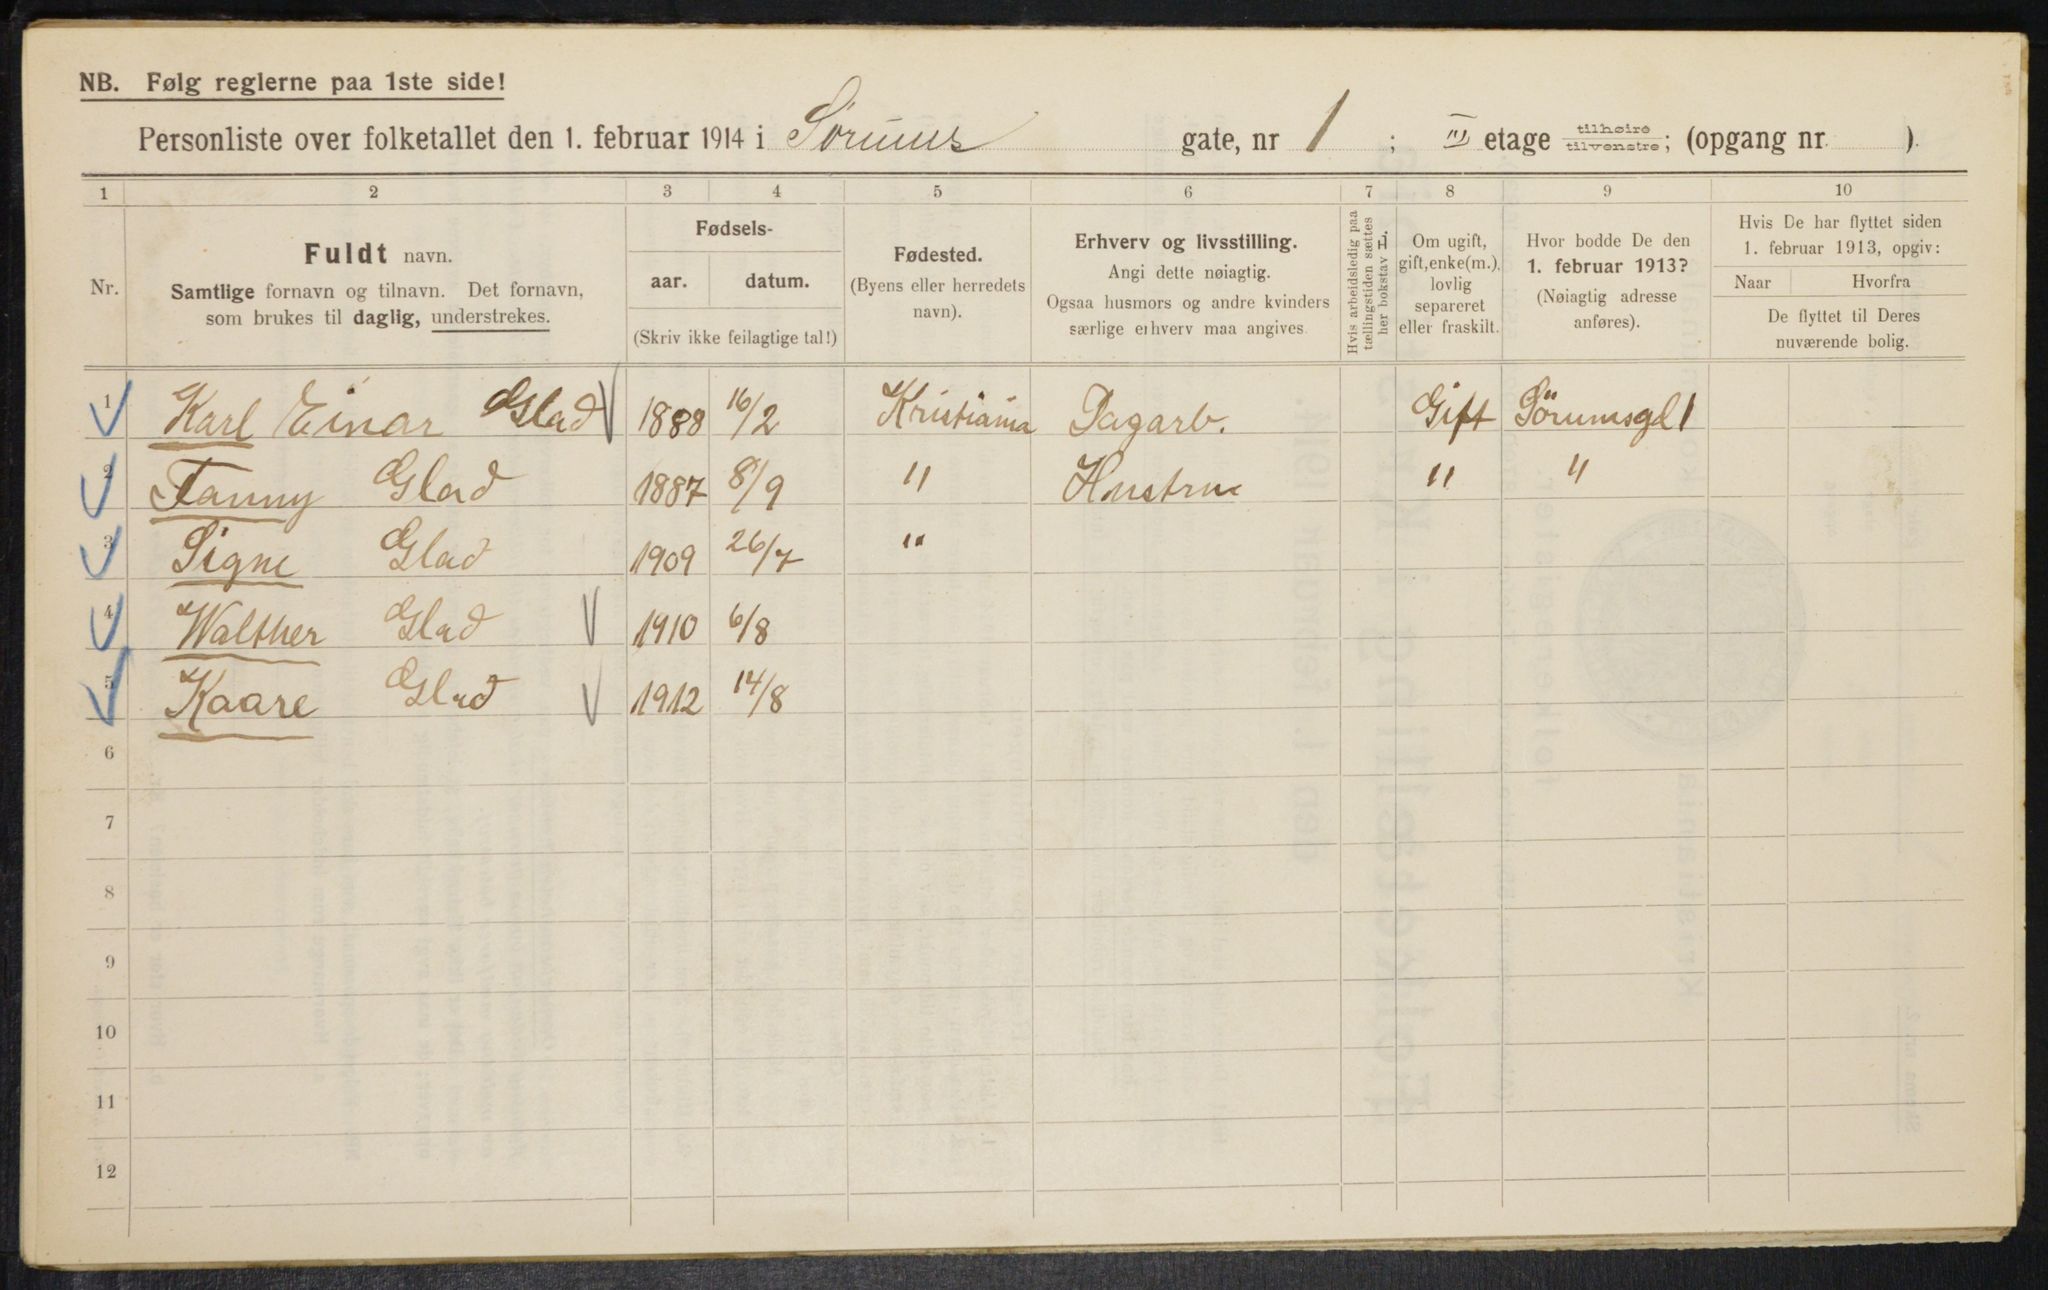 NB. Følg reglerne paa 1ste side!
Personliste over folketallet den 1. februar 1914 i Sørums gate, nr 1 ; III etage tilhøire tilvenstre; (opgang nr. ).
1 2 3 4 5 6 7 8 9 10
Nr.
Fuldt navn.
Samtlige fornavn og tilnavn. Det fornavn,
som brukes til daglig, understrekes.
Fødsels-
aar. datum.
(Skriv ikke feilagtige tal!)
Fødested.
(Byens eller herredets
navn).
Erhverv og livsstilling.
Angi dette nøiagtig.
Ogsaa husmors og andre kvinders
særlige erhverv maa angives.
Hvis arbeidsledig paa
tællingstiden sættes
her bokstav L.
Om ugift,
gift, enke(m.),
lovlig
separeret
eller fraskilt.
Hvor bodde De den
1. februar 1913?
(Nøiagtig adresse
anføres).
Hvis De har flyttet siden
1. februar 1913, opgiv:
Naar Hvorfra
De flyttet til Deres
nuværende bolig.
1 Karl Einar Glad 1888 16/2 Kristiania Dagarb. Gift Sörumsgd 1
2 Fanny Glad 1887 8/9 " Hustru " "
3 Signe Glad 1909 26/7 "
4 Walther Glad 1910 6/8
5 Kaare Glad 1912 14/8
6
7
8
9
10
11
12